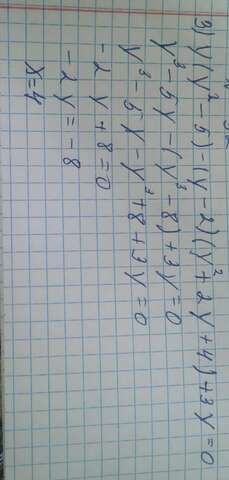 3) y(y²-5)-(y-2)(y²+2y+4)+3y=0
y³-5y-(y³-8)+3y=0
y³-5y-y³+8+3y=0
-2y+8=0
-2y=-8
x=4